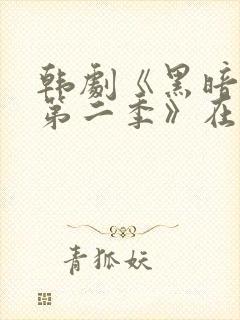 韩劇《黑暗
第二季》在
青狐妖